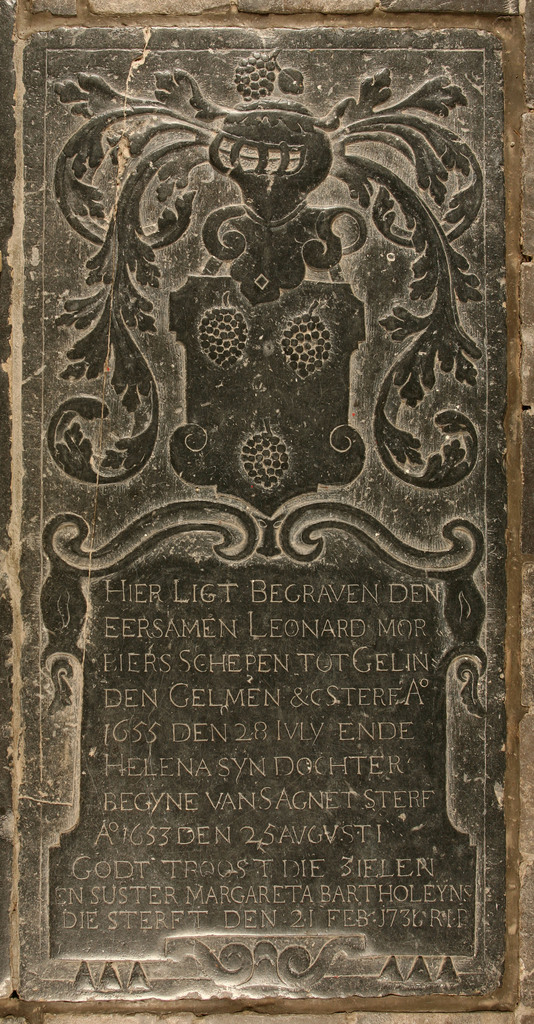 HIER LIGT BEGRAVEN DEN
EERSAMEN LEONARD MOR
BIERS SCHEPEN TOT GELIN
DEN GELMEN &C STERF Aº
1655 DEN 28 IVLY ENDE
HELENA SYN DOCHTER
BEGYNE VAN S AGNET STERF
Aº 1653 DEN 25 AVGVSTI
GODT TROOST DIE ZIELEN
EN SUSTER MARGARETA BARTHOLEŸNS
DIE STERFT DEN 21 FEB 1736 RIP